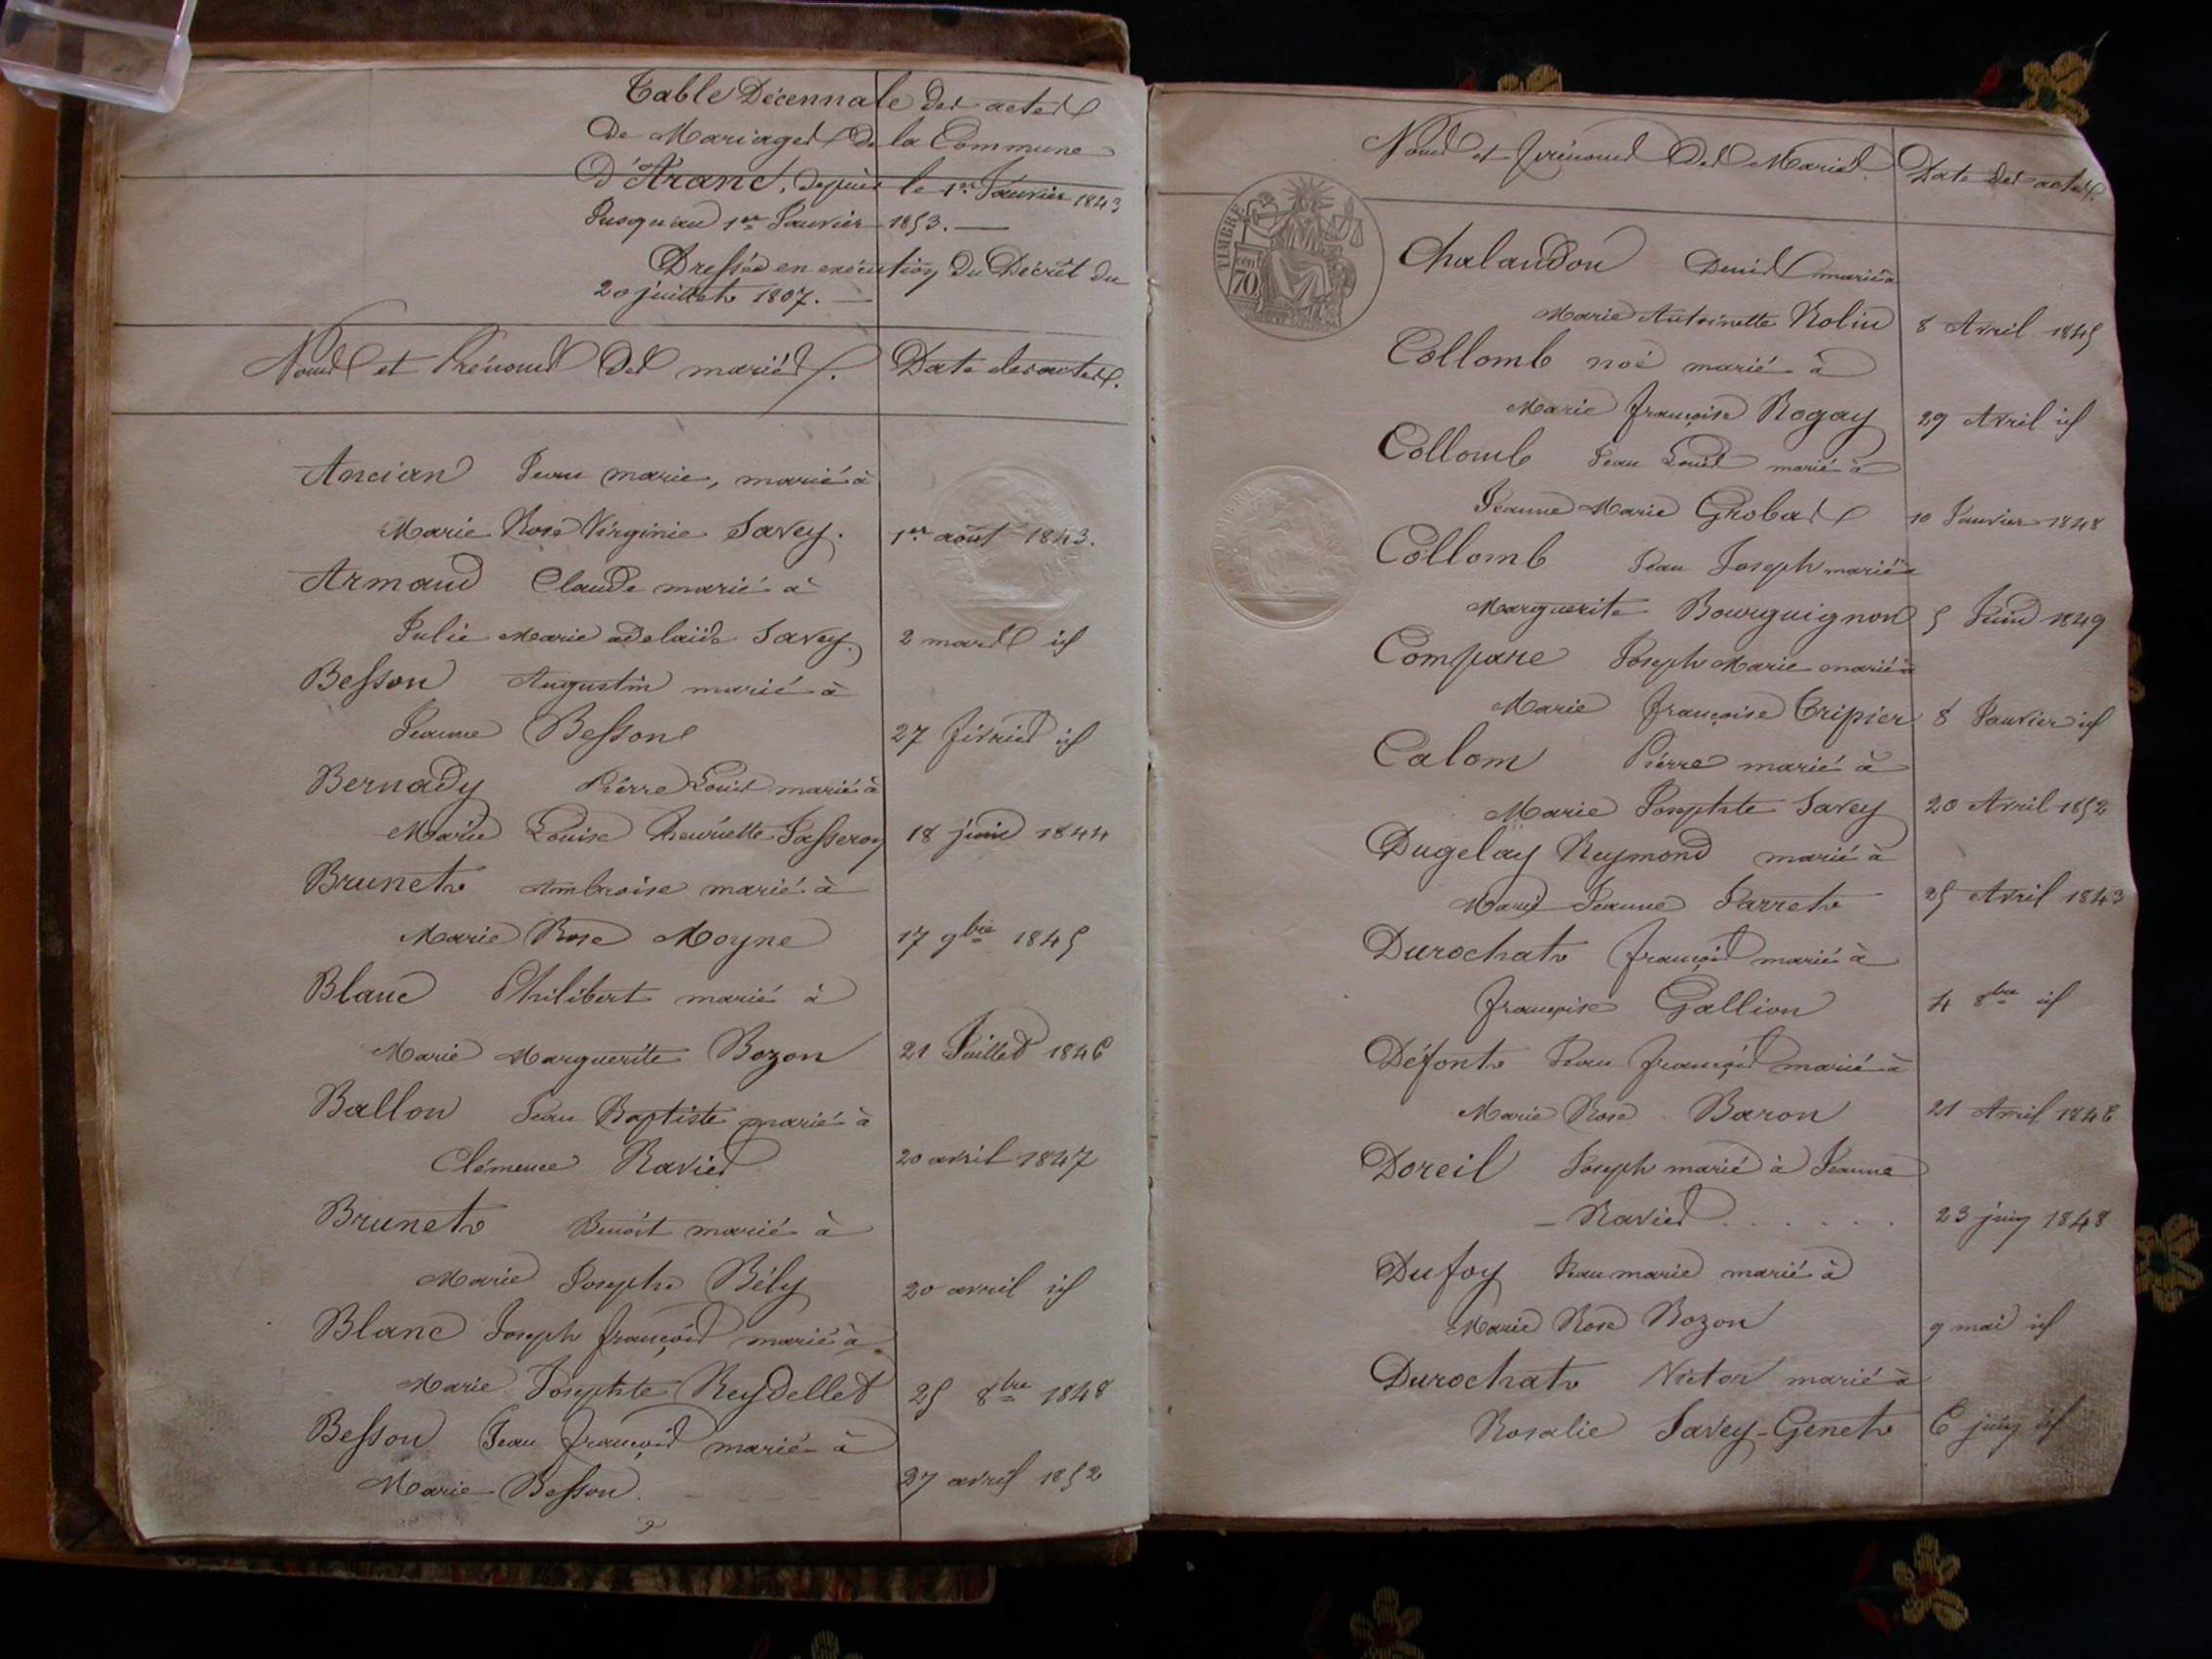 Table Décennale des actes
de Mariages de la Commune
d'Aranc, depuis le 1er Janvier 1843
Jusqu'au 1er Janvier 1853. —
Dressée en exécution du Décret du
20 juillet 1807. —
Noms et Prénoms des mariés. Date des actes.
Ancian Jean marie, marié à
Marie Rose Virginie Savey. 1er août 1843.
Armand Claude marié à
Julie Marie adelaïde Savey. 2 mars id
Besson Augustin marié à
Jeanne Besson 27 février id
Bernady Pierre Louis marié à
Marie Louise henriette Passeron 18 juin 1844
Brunet Ambroise marié à
Marie Rose Moyne 17 9bre 1845
Blanc Philibert marié à
Marie Marguerite Bozon 21 Juillet 1846
Ballon Jean Baptiste marié à
Clémence Ravier 20 avril 1847
Brunet Benoit marié à
Marie Josephe Bély 20 avril id
Blanc Joseph françois marié à
Marie Josephte Reydellet 25 8bre 1848
Besson Jean françois marié à
Marie Besson. 27 avril 1852
Noms et prénoms des Mariés. Date des actes.
TIMBRE
70
Chalandon Denis marié à
Marie Antoinette Rolin 8 Avril 1845
Collomb noé marié à
Marie françoise Rogay 29 Avril id
Collomb Jean Louis marié à
Jeanne Marie Grobas 10 Janvier 1848
Collomb Jean Joseph marié à
Marguerite Bourguignon 5 Juin 1849
Compare Joseph Marie marié à
Marie françoise Tripier 8 Janvier id
Calom Pierre marié à
Marie Josephte Savey 20 Avril 1852
Dugelay Reymond marié à
Marie Jeanne Jarret 25 Avril 1843
Durochat françois marié à
françoise Gallion 4 8bre id
Défont Jean françois marié à
Marie Rose Baron 21 Avril 1846
Doreil Joseph marié à Jeanne
– Ravier . . . . . . 23 juin 1848
Dufoy Jean marie marié à
Marie Rose Bozon 9 mai id
Durochat Victor marié à
Rosalie Savey-Genet 6 juin id